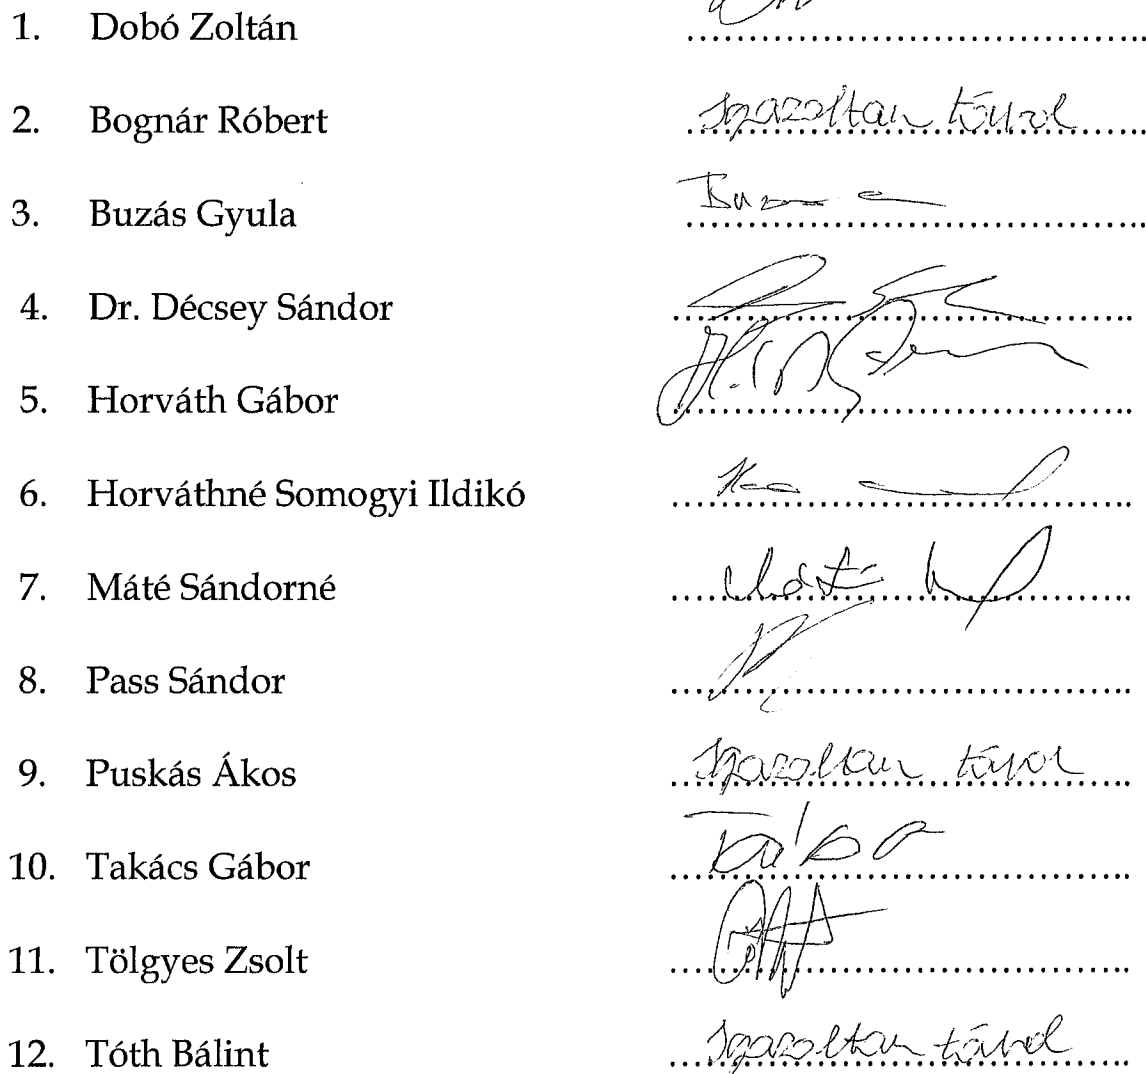 1. Dobó Zoltán ........................................
2. Bognár Róbert igazoltan távol
3. Buzás Gyula Buzás
4. Dr. Décsey Sándor ........................................
5. Horváth Gábor ........................................
6. Horváthné Somogyi Ildikó ........................................
7. Máté Sándorné Máté
8. Pass Sándor ........................................
9. Puskás Ákos igazoltan távol
10. Takács Gábor ........................................
11. Tölgyes Zsolt ........................................
12. Tóth Bálint igazoltan távol